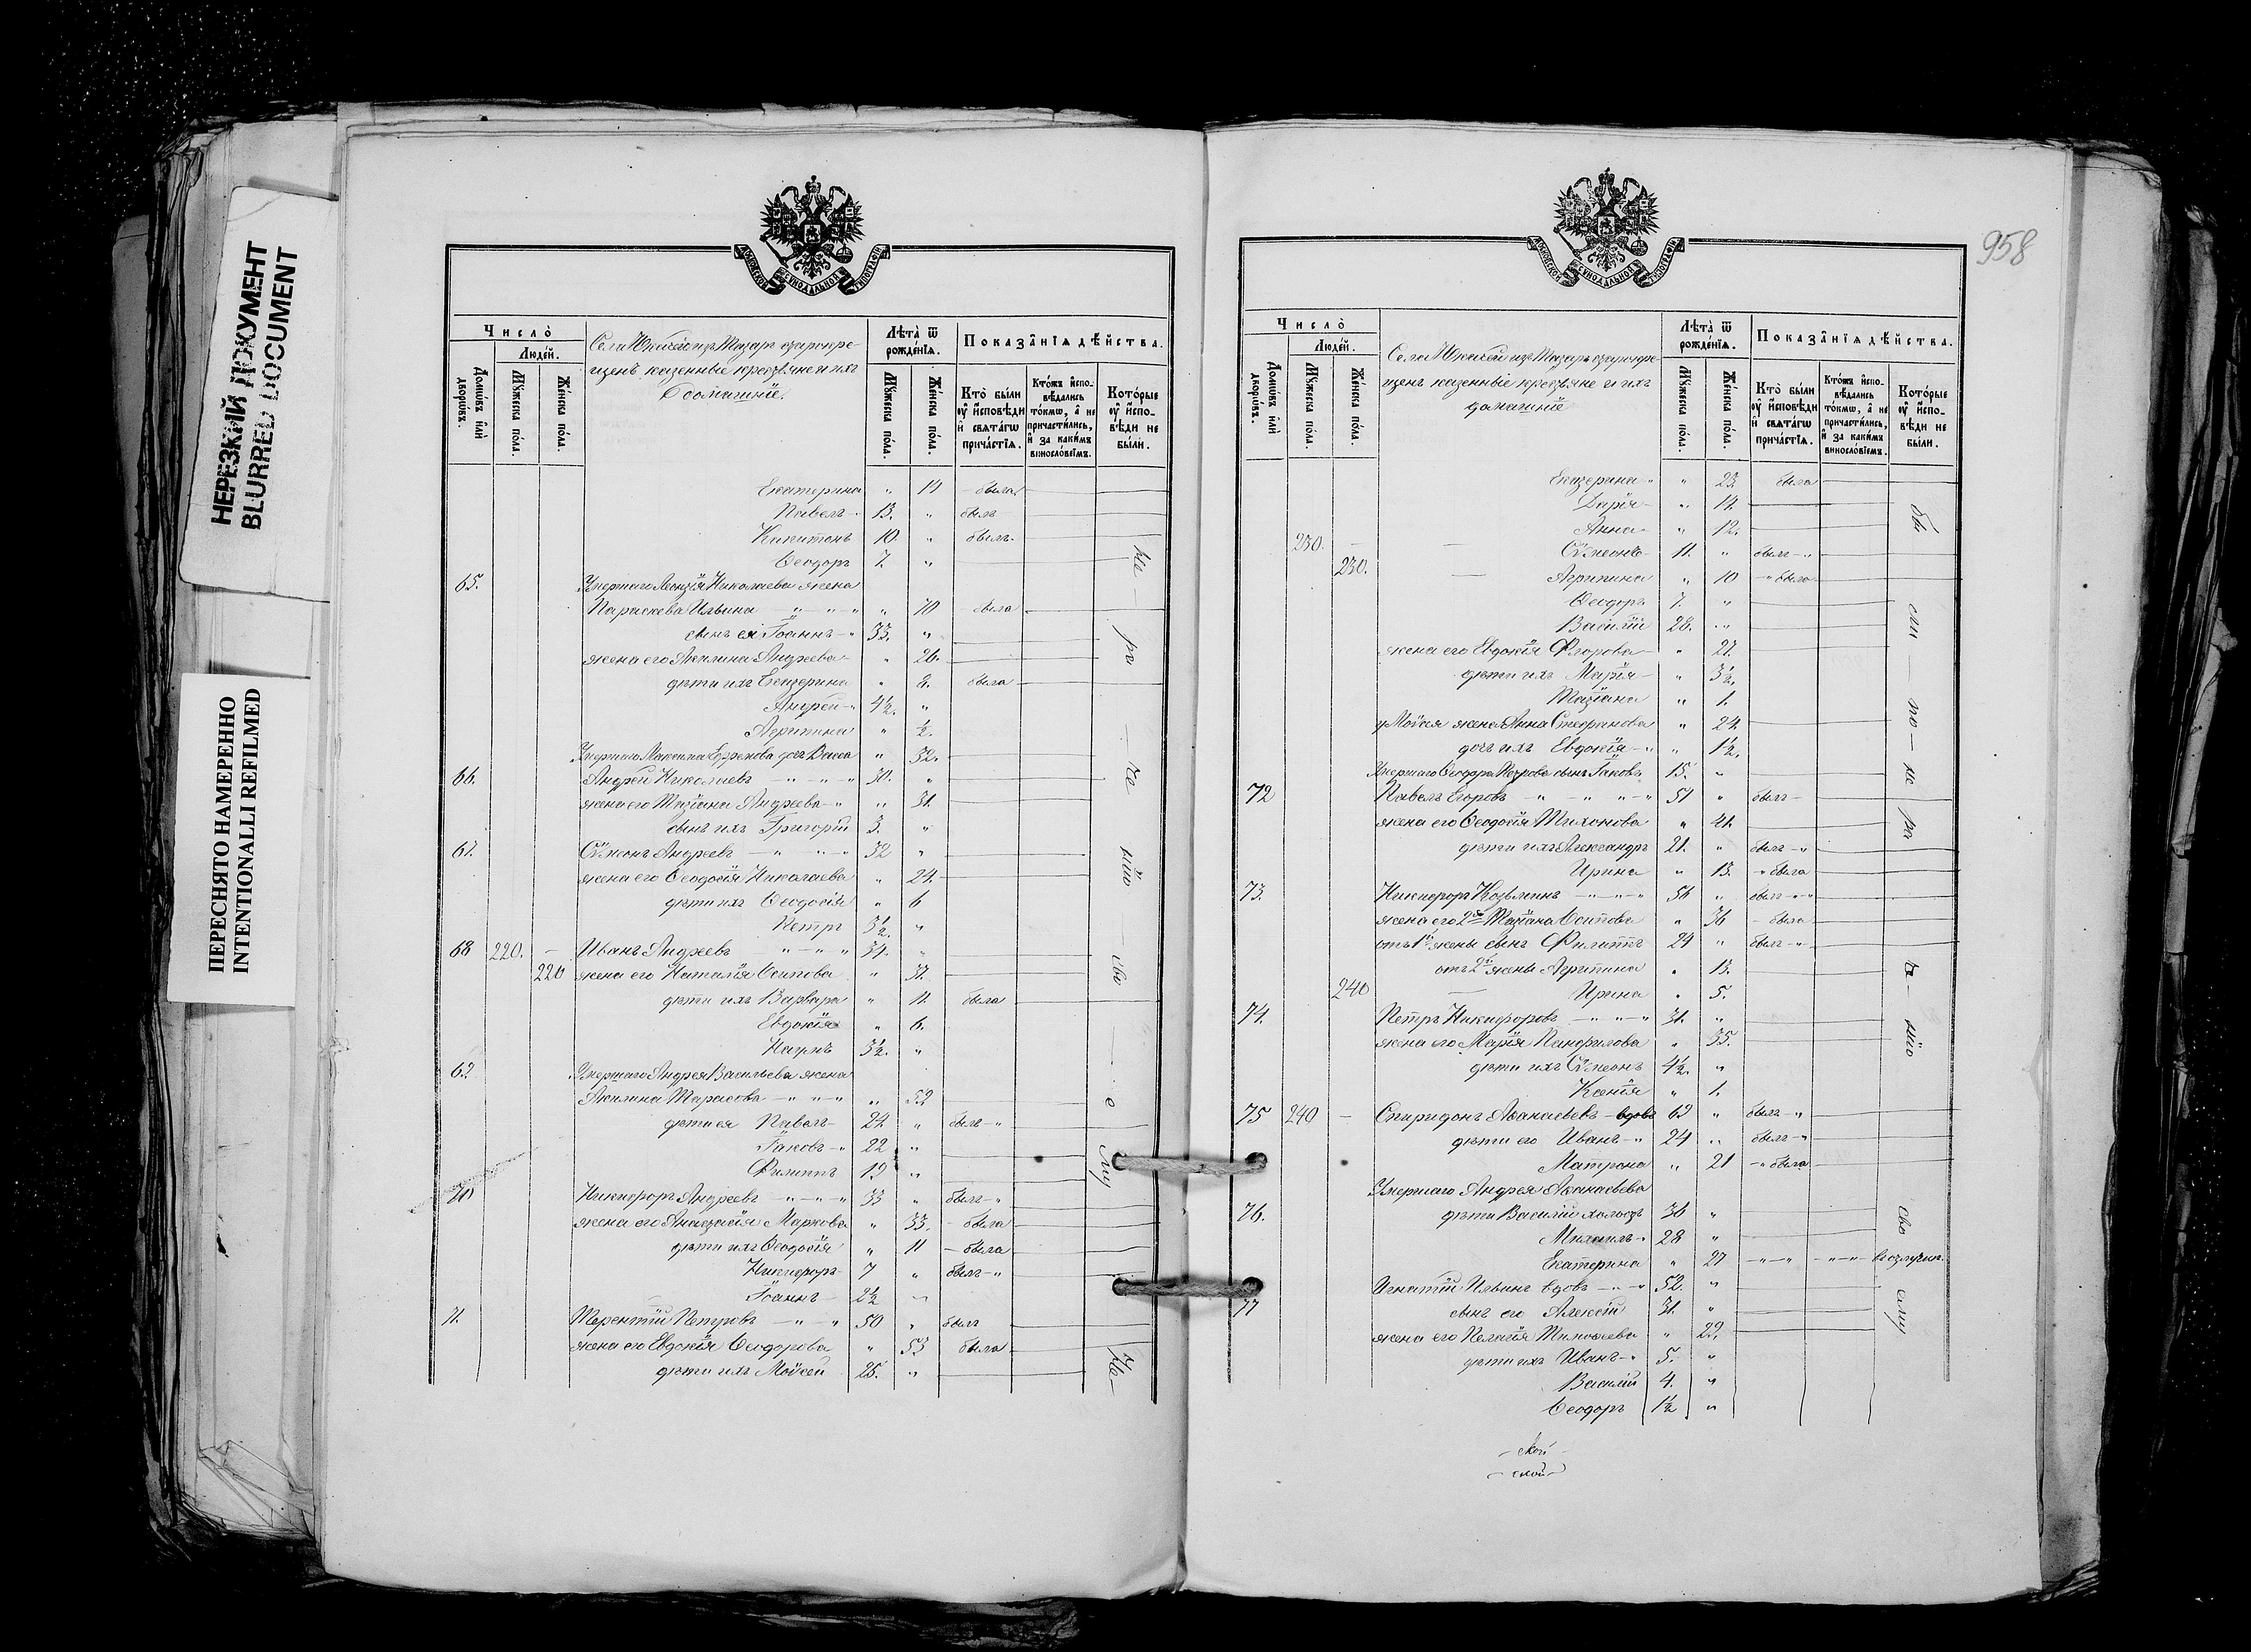 НЕРЕЗКИЙ ДОКУМЕНТ
BLURRED DOCUMENT
ПЕРЕСНЯТО НАМЕРЕННО
INTENTIONALLI REFILMED
МОСКОВСКОЙ СѴНОДАЛЬНОЙ ТИПОГРАФІИ
Число̀
Люде́й.
Домѡ́въ и҆лѝ дворѡ́въ.
Мꙋ́жеска по́ла.
Же́нска по́ла.
казенные крестьяне и ихъ
домашніе.
Лѣта̀ ѿ рожде́нїѧ.
Мꙋ́жеска по́ла.
Же́нска по́ла.
Показа̑нїѧ дѣ́йства.
Кто̀ бы́ли ᲂу҆ и҆́сповѣди и҆ свѧта́гѡ прича́стїѧ.
Кто́жъ и҆спо- вѣ́дались то́кмѡ, а҆ не причасти́лись, и҆ за каки́мъ винослѡ́вїемъ.
Кото́рые ᲂу҆ и҆́спо- вѣди не бы́ли.
Екатерина " 14 была
Павелъ 13. " былъ
Харитонъ 10. " былъ
Ѳеодоръ 7. "
65. Умершаго Николаева жена
Параскева Ильина " 70 была
сынъ ея Іоаннъ 33. "
жена его Акилина Андреева " 26.
дѣти ихъ Екатерина " 8. была
Андрей 4½. "
Агрипина " ½.
Умершаго Максима Ефремова дочь Васса " 32.
66. Андрей Николаевъ 30. "
жена его Татіана Андреева " 31.
сынъ ихъ Григорій 3. "
67. Сѵмеонъ Андреевъ 32 "
жена его Ѳеодосія Николаева " 24.
дѣти ихъ Ѳеодосія " 6
Петръ 3½. "
68 220. Иванъ Андреевъ 34. "
220 жена его Наталія Осипова " 31.
дѣти ихъ Варвара " 11. была
Евдокія " 6.
Наумъ 3½. "
69 Умершаго Андрея Васильева жена
Акилина Тарасова " 52
дѣти ея Павелъ 24. " былъ
Іаковъ 22 "
Филиппъ 19. "
70 Никифоръ Андреевъ 33 " былъ
жена его Анастасія Маркова " 33. была
дѣти ихъ Ѳеодосія " 11 была
Никифоръ 7 " былъ
Іоаннъ 2½ "
71. Терентій Петровъ 50 " былъ
жена его Евдокія Ѳеодорова " 53 была
дѣти ихъ Моѵсей 25. "
958
Число̀
Люде́й.
Домѡ́въ и҆лѝ дворѡ́въ.
Мꙋ́жеска по́ла.
Же́нска по́ла.
казенные крестьяне и ихъ
домашніе
Лѣта̀ ѿ рожде́нїѧ.
Мꙋ́жеска по́ла.
Же́нска по́ла.
Показа̑нїѧ дѣ́йства.
Кто̀ бы́ли ᲂу҆ и҆́сповѣди и҆ свѧта́гѡ прича́стїѧ.
Кто́жъ и҆спо- вѣ́дались то́кмѡ, а҆ не причасти́лись, и҆ за каки́мъ винослѡ́вїемъ.
Кото́рые ᲂу҆ и҆́спо- вѣди не бы́ли.
Екатерина " 23. была
Дарія " 14.
Анна " 12.
230. Сѵмеонъ 11. " былъ
230. Агрипина " 10 была
Ѳеодоръ 7. "
Василій 28. "
жена его Евдокія Флорова " 27.
дѣти ихъ Марія " 3½.
Татіана " 1.
у Моѵсея жена Анна Стефанова " 24.
дочь ихъ Евдокія " 1½.
Умершаго Ѳеодора Петрова сынъ Іаковъ 15. "
72 Павелъ Егоровъ 51 " былъ
жена его Ѳеодосія Тихонова " 41.
дѣти ихъ Александръ 21. " былъ
Ирина " 13. была
73. Никифоръ Козьминъ 56 " былъ
жена его 2я Татіана Осипова " 36 была
отъ 1й жены сынъ Филиппъ 29 " былъ
отъ 2й жены Агрипина " 13.
240 Ирина " 5.
74. Петръ Никифоровъ 31. "
жена его Марія Панфилова " 35.
дѣти ихъ Сѵмеонъ 4½. "
Ксенія " 1.
75 240 Спиридонъ Аѳанасьевъ вдовъ 62 " былъ
дѣти его Иванъ 24 " былъ
Матрона " 21 была
Умершаго Андрея Аѳанасьева
76. дѣти Василій холостъ 36 "
Михаилъ 28 "
Екатерина " 27
Игнатій Ильинъ вдовъ 52. "
77 сынъ его Алексій 31. "
жена его Пелагія Тимоѳеева " 29.
дѣти ихъ Иванъ 5. "
Василій 4. "
Ѳеодоръ 1½ "